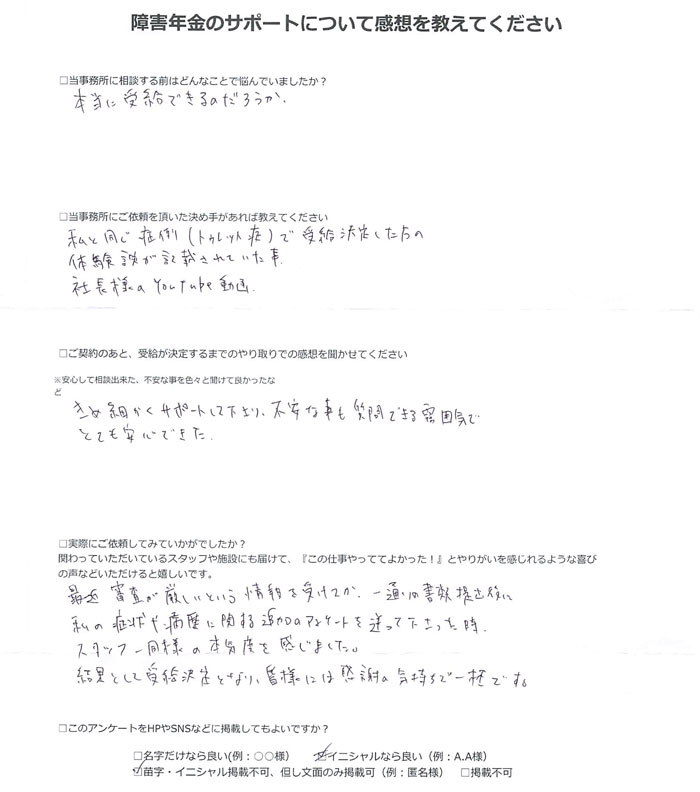 障害年金のサポートについて感想を教えてください
□当事務所に相談する前はどんなことで悩んでいましたか？
本当に受給できるのだろうか.
□当事務所にご依頼を頂いた決め手があれば教えてください
私と同じ症例（トゥレット症）で受給決定した方の
体験談が記載されていた事.
社長様のYouTube動画.
□ご契約のあと、受給が決定するまでのやり取りでの感想を聞かせてください
※安心して相談出来た、不安な事を色々と聞けて良かったな
ど
きめ細かくサポートして下さり、不安な事も質問できる雰囲気で
とても安心できた.
□実際にご依頼してみていかがでしたか？
関わっていただいているスタッフや施設にも届けて、『この仕事やっててよかった！』とやりがいを感じれるような喜び
の声などいただけると嬉しいです。
最近 審査が厳しいという情報を受けてか、一通りの書類提出後に
私の症状や病歴に関する追加のアンケートを送って下さった時、
スタッフ一同様の本気度を感じました。
結果として受給決定となり、皆様には感謝の気持ちで一杯です。
□このアンケートをHPやSNSなどに掲載してもよいですか？
□名字だけなら良い(例：○○様）　☑イニシャルなら良い（例：A.A様）
☑苗字・イニシャル掲載不可、但し文面のみ掲載可（例：匿名様）　□掲載不可